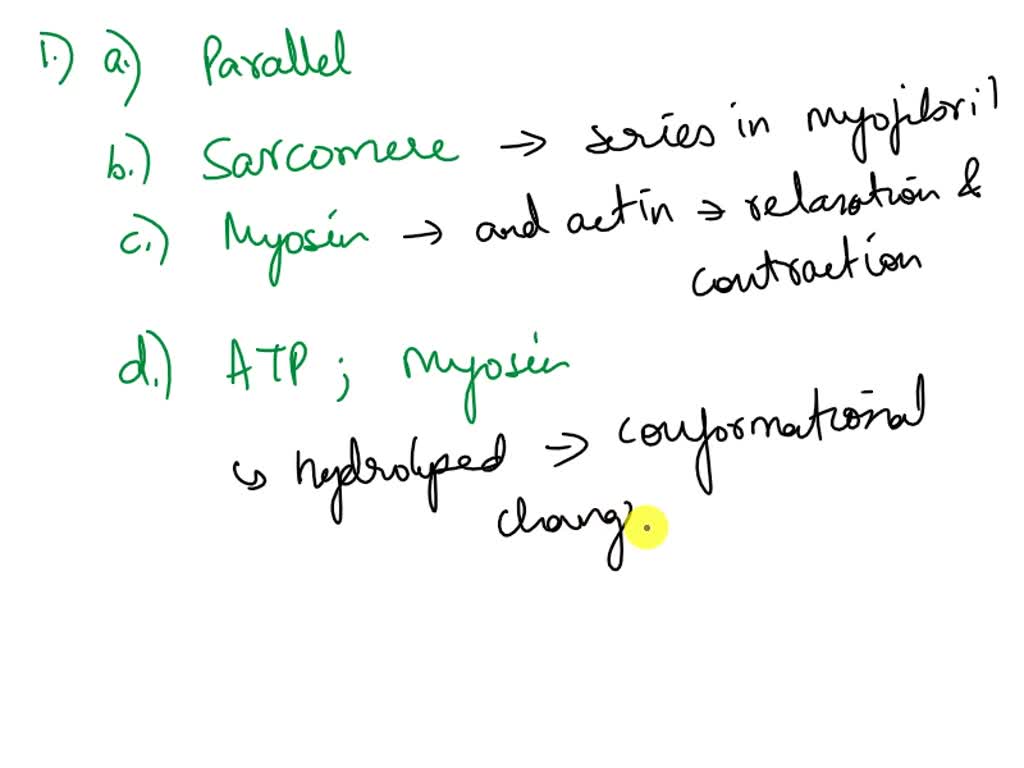 1.) a.) Parallel
b.) Sarcomere → series in myofibril
c.) Myosin → and actin → relaxation &
contraction
d.) ATP ; Myosin
↳ hydrolysed → conformational
chang